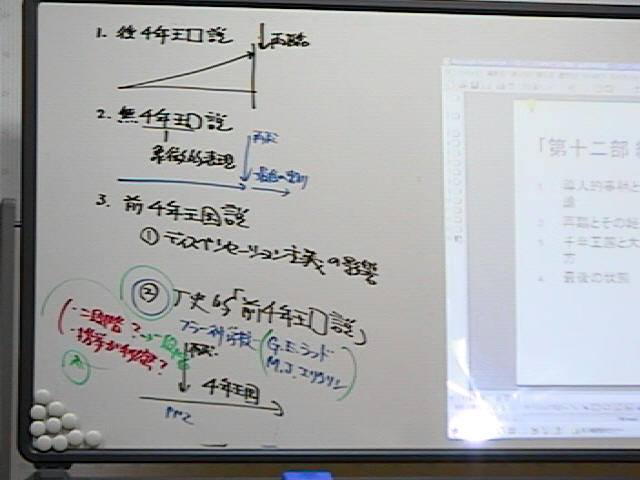 1. 後千年王国説
再臨
2. 無千年王国説
象徴的表現
再臨
3. 前千年王国説
① ディスペンセーション主義の影響
② 歴史的「前千年王国説」
フラー神学校
G.E.ラッド
M.J.エリクソン
・二段階?→一段階
・携挙が秘密?
再臨
千年王国
「第十二部
1.
2. 再臨とその
3. 千年王国と大
方
4. 最後の状態